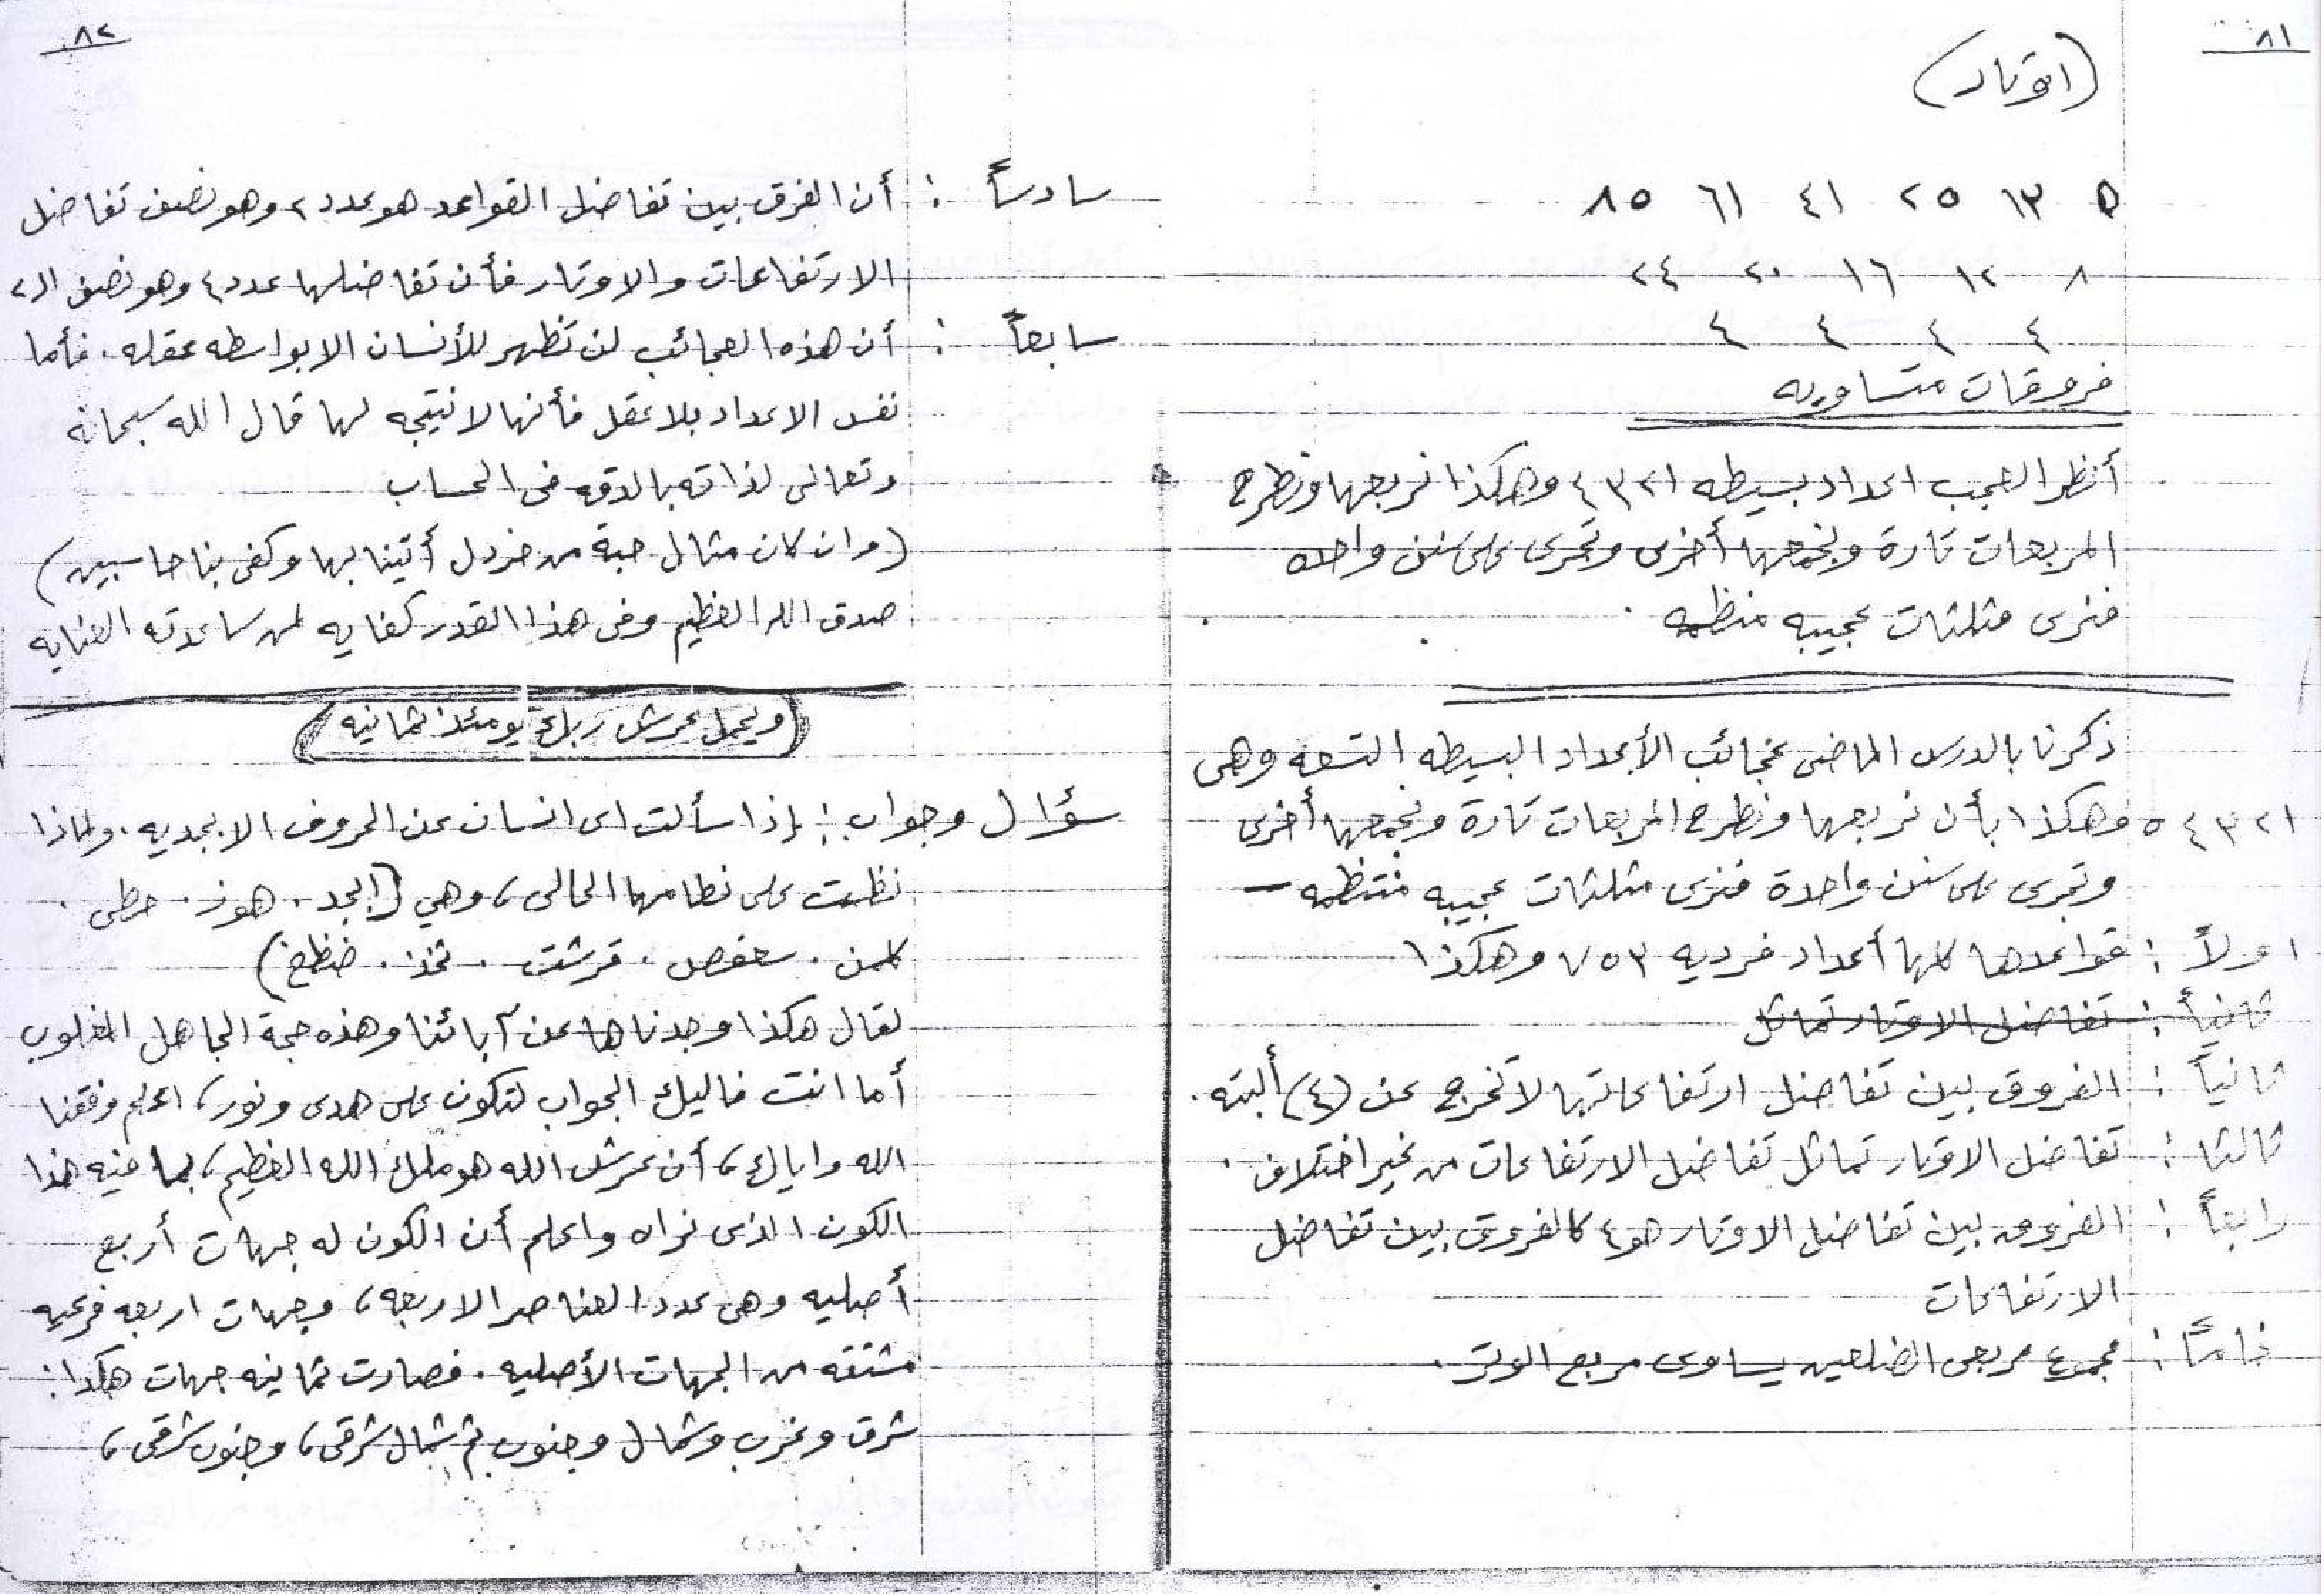 ٨١
(اوتار)
٥ ١٣ ٢٥ ٤١ ٦١ ٨٥
٨ ١٢ ١٦ ٢٠ ٢٤
٤ ٤ ٤ ٤
فروقات متساويه
أنظر العجب اعداد بسيطه ١ ٢ ٣ ٤ وهكذا نربعها ونطرح
المربعات تارة ونجمعها أخرى وتجرى على سنن واحده
فنرى مثلثات عجيبه منظمه .
ذكرنا بالدرس الماضى عجائب الأعداد البسيطه التسعه وهى
١ ٢ ٣ ٤ ٥ وهكذا بأن نربعها ونطرح المربعات تارة ونجمعها أخرى
وتجرى على سنن واحدة فنرى مثلثات عجيبه منتظمه –
اولاً : قواعدها كلها أعداد فرديه ٣ ٥ ٧ وهكذا
ثانياً : تفاضل الاوتار تماثل
ثانياً : الفروق بين تفاضل ارتفاعاتها لا تخرج عن (٤) ألبته .
ثالثا : تفاضل الاوتار تماثل تفاضل الارتفاعات من غير اختلاف .
رابعاً : الفروق بين تفاضل الاوتار هو ٤ كالفروق بين تفاضل
الارتفاعات
خامساً : مجموع مربعى الضلعين يساوى مربع الوتر .
٨٢
سادساً : أن الفرق بين تفاضل القواعد هو عدد ٢ وهو نصف تفاضل
الارتفاعات والاوتار فأن تفاضلها عدد ٤ وهو نصف ال ٢
سابعاً : أن هذه العجائب لن تظهر للأنسان الا بواسطه عقله . فأما
نفس الاعداد بلا عقل فأنها لا نتيجه لها قال الله سبحانه
وتعالى لذاته بالدقه فى الحساب
(وان كان مثال حبة من خردل أتينا بها وكفى بنا حاسبين)
صدق الله العظيم وفى هذا القدر كفايه لمن ساعدته العنايه
(ويحمل عرش ربك يومئذ ثمانيه)
سؤال وجواب : إذا سألت اى انسان عن الحروف الابجديه . ولماذا
نظمت على نظامها الحالى ، وهي (ابجد . هوز . حطى .
كلمن . سعفص . قرشت . ثخذ . ضظغ)
لقال هكذا وجدناها عن آبائنا وهذه حجة الجاهل المغلوب
أما انت فاليك الجواب لتكون على هدى ونور ، اعلم وفقنا
الله واياك ، أن عرش الله هو ملك الله العظيم ، بما فيه هذا
الكون الذى نراه واعلم أن الكون له جهات أربع
أصليه وهى عدد العناصر الاربعه ، وجهات اربعه فرعيه
مشتقه من الجهات الأصليه . فصارت ثمانيه جهات هكذا :
شرق وغرب وشمال وجنوب ثم شمال شرقى ، وجنوب شرقى ،